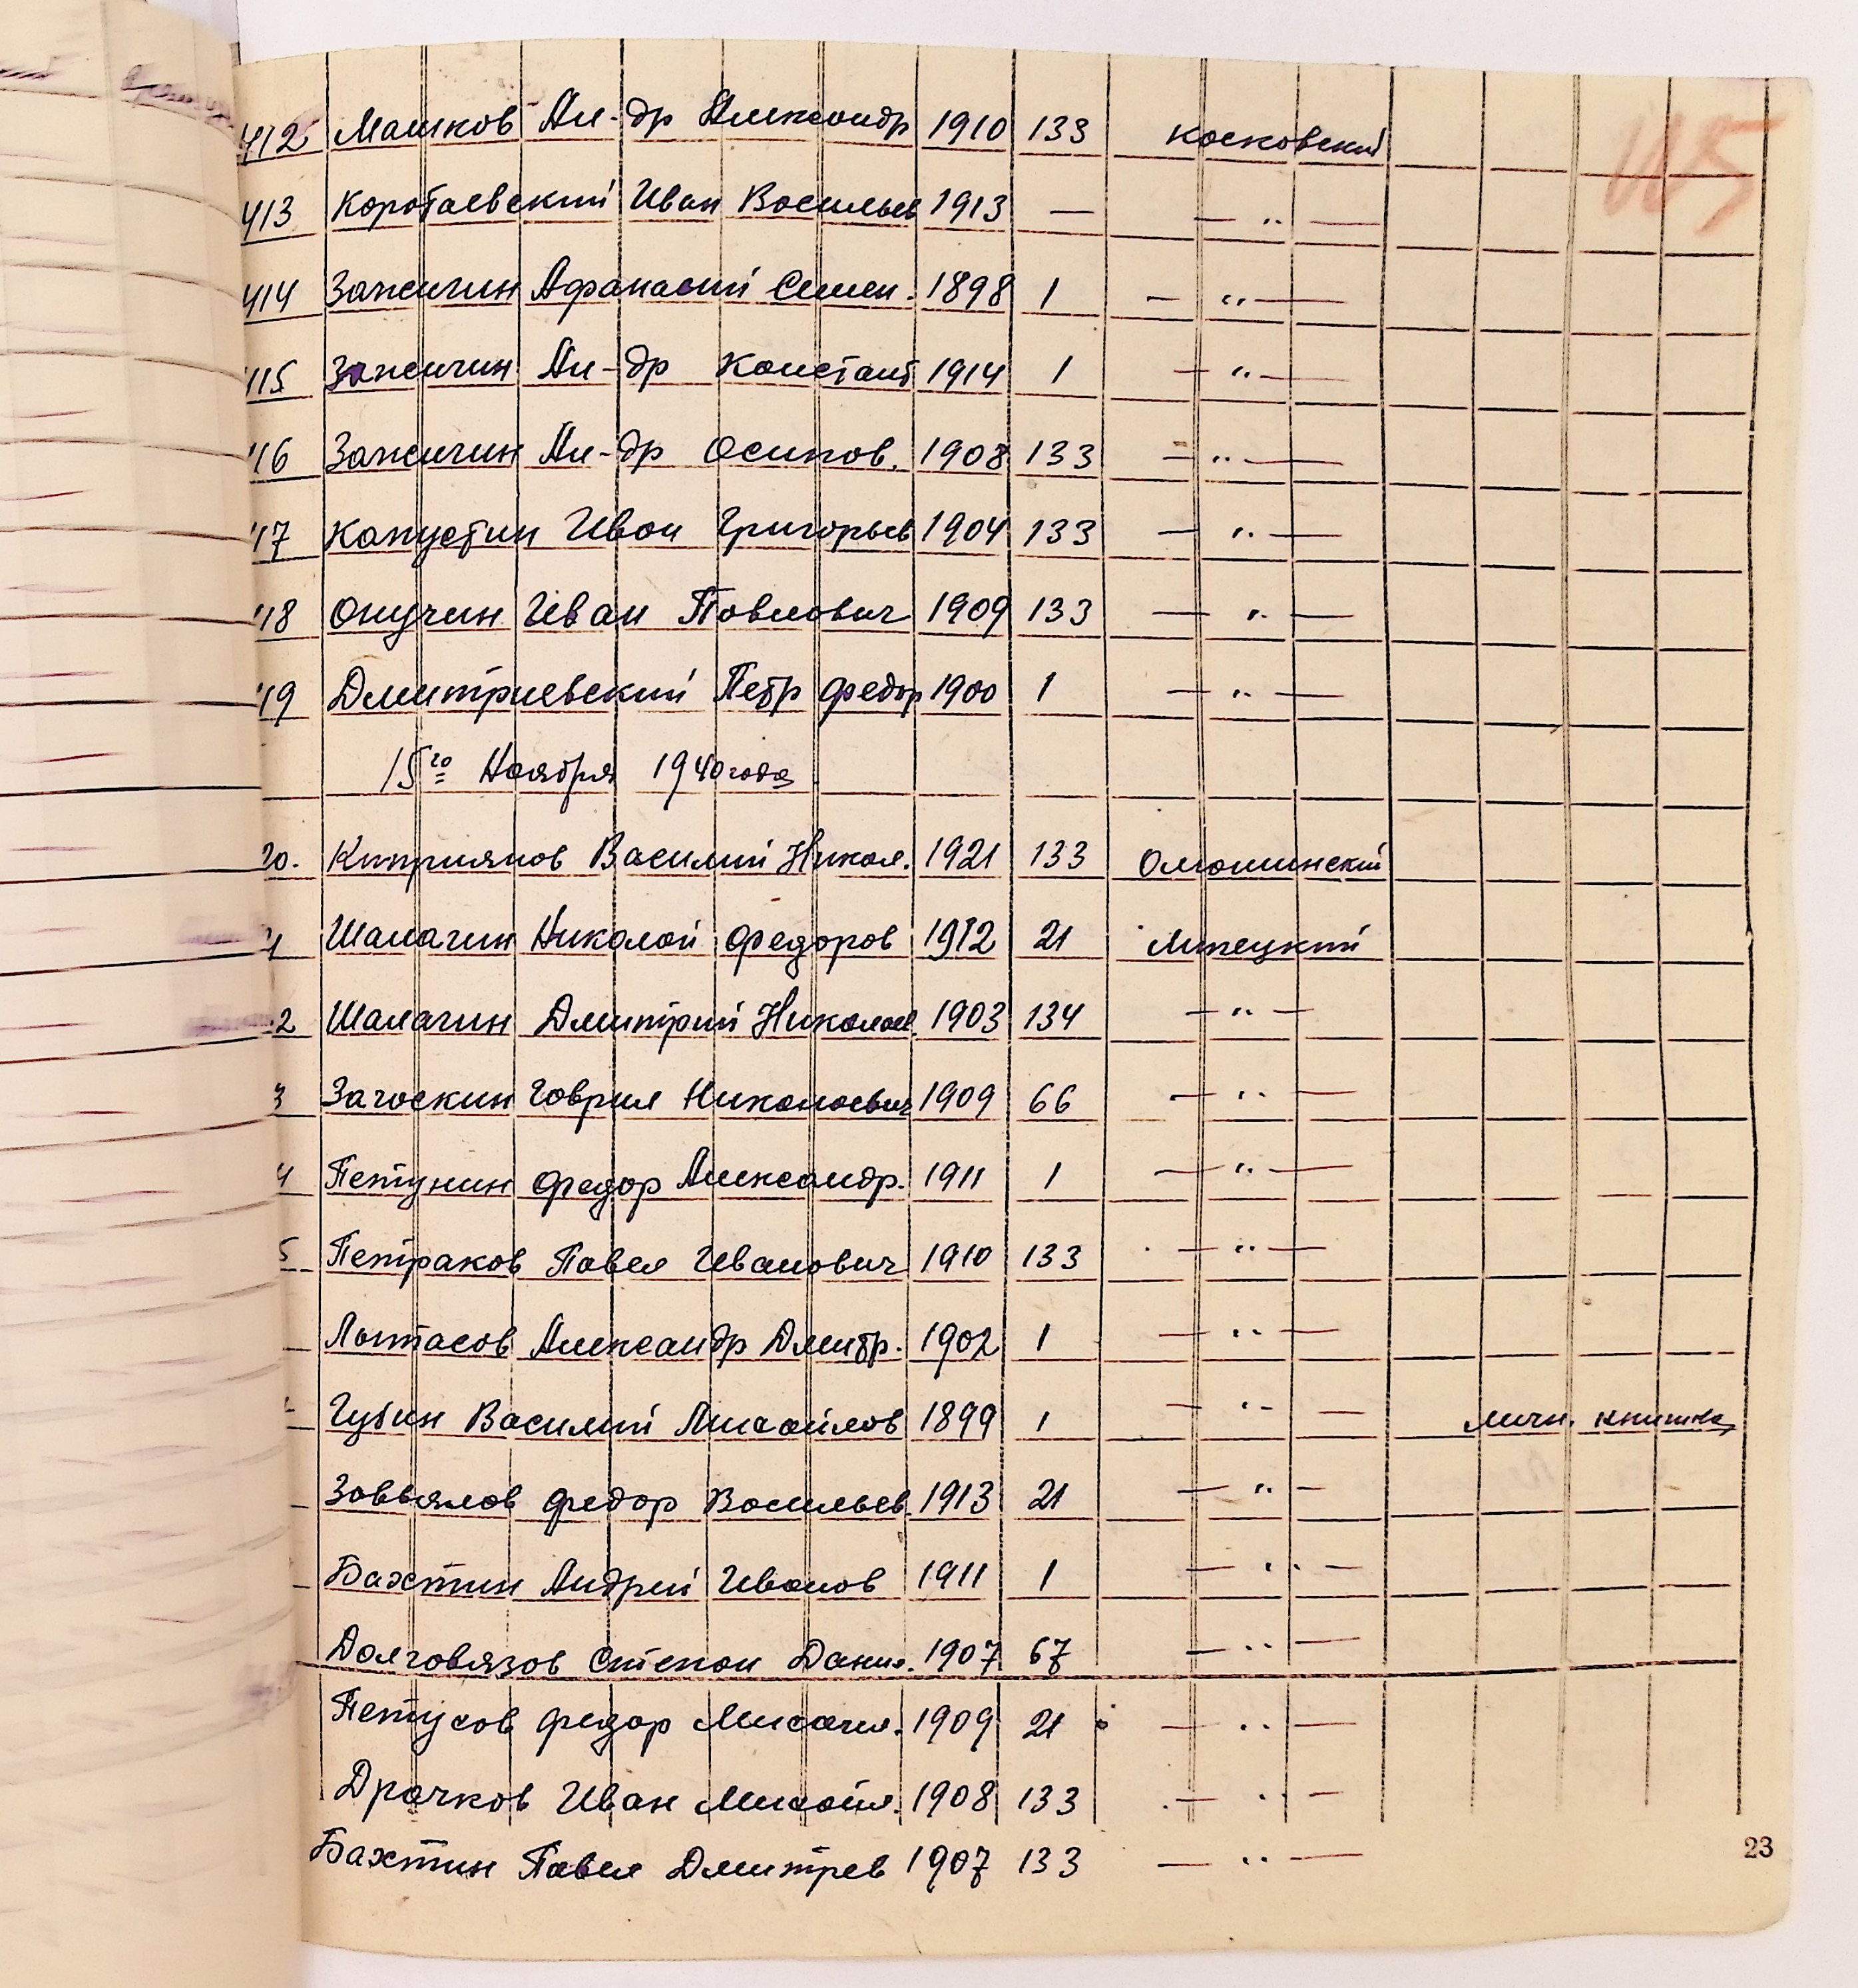 115
412 Машков Ал-др Александр 1910 133 Косковский
413 Коротаевский Иван Васильев 1913 — — " —
414 Зажигин Афанасий Семен. 1898 1 — " —
415 Зажигин Ал-др Констант 1914 1 — " —
416 Зажигин Ал-др Осипов. 1908 133 — " —
417 Капустин Иван Григорьев 1904 133 — " —
418 Онучин Иван Павлович 1909 133 — " —
419 Дмитриевский Петр Федор 1900 1 — " —
15го Ноября 1940 года
20. Киприянов Василий Никол. 1921 133 Омошинский
1 Шалагин Николай Федоров 1912 21 Липецкий
2 Шалагин Дмитрий Николаев. 1903 134 — " —
3 Загоскин Гаврил Николаевич 1909 66 — " —
4 Петунин Федор Александр. 1911 1 — " —
5 Петраков Павел Иванович 1910 133 — " —
Лытасов Александр Дмитр. 1902 1 — " —
Губин Василий Михайлов 1899 1 — " — личн. книжка
Завьялов Федор Васильев. 1913 21 — " —
Бахтин Андрей Иванов 1911 1 — " —
Долговязов Степан Данил. 1907 67 — " —
Петухов Федор Михаил. 1909 21 — " —
Драчков Иван Михайл. 1908 133 — " —
Бахтин Павел Дмитрев 1907 133 — " —
23